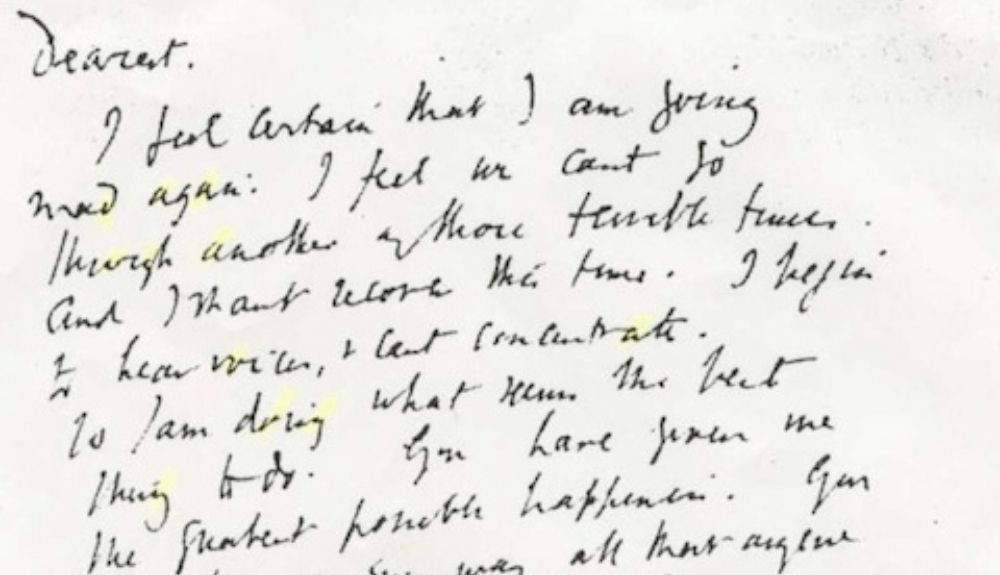 Dearest.
I feel certain that I am going
mad again: I feel we cant go
through another of those terrible times.
And I shant recover this time. I begin
to hear voices, & cant concentrate.
So I am doing what seems the best
thing to do. You have given me
the greatest possible happiness. You
in every way all that anyone